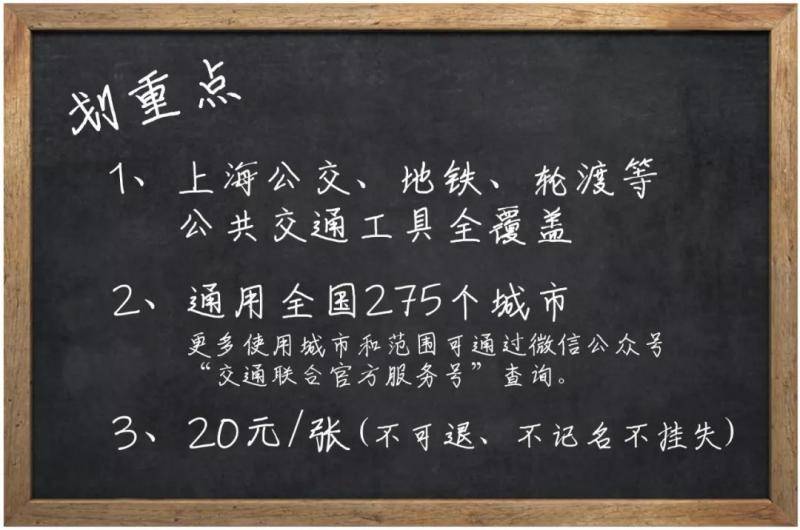 划重点
1、上海公交、地铁、轮渡等
公共交通工具全覆盖
2、通用全国275个城市
更多使用城市和范围可通过微信公众号
“交通联合官方服务号”查询。
3、20元/张(不可退、不记名不挂失)